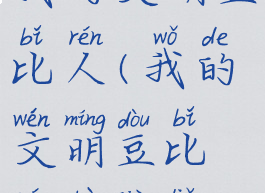 bǐ rén wǒ de
比人(我的
wén míng dòu bǐ
文明豆比